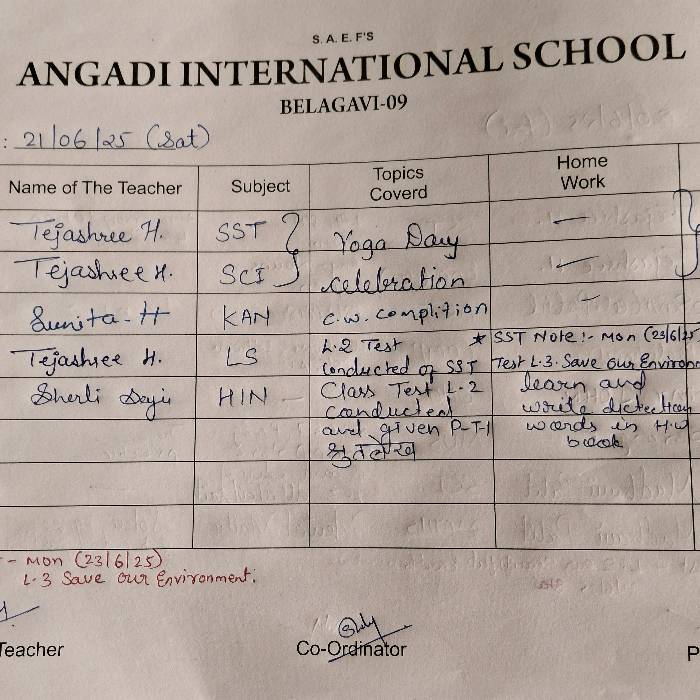 S. A. E. F'S
ANGADI INTERNATIONAL SCHOOL
BELAGAVI-09
: 21/06/25 (Sat)
Name of The Teacher Subject Topics Coverd Home Work
Tejashree H. SST Yoga Day —
Tejashree H. SCI celebration —
Sunita-H KAN C.W. complition -
Tejashree H. LS L.2 Test conducted of SST * SST Note :- Mon (23/6/25 Test L.3. Save our Environ
Sherli HIN - Class Test L-2 conducted and given P-T-1 श्रुतलेख learn and write dictection words in H.W book
- Mon (23/6/25)
L-3 Save our Environment.
Teacher Co-Ordinator P